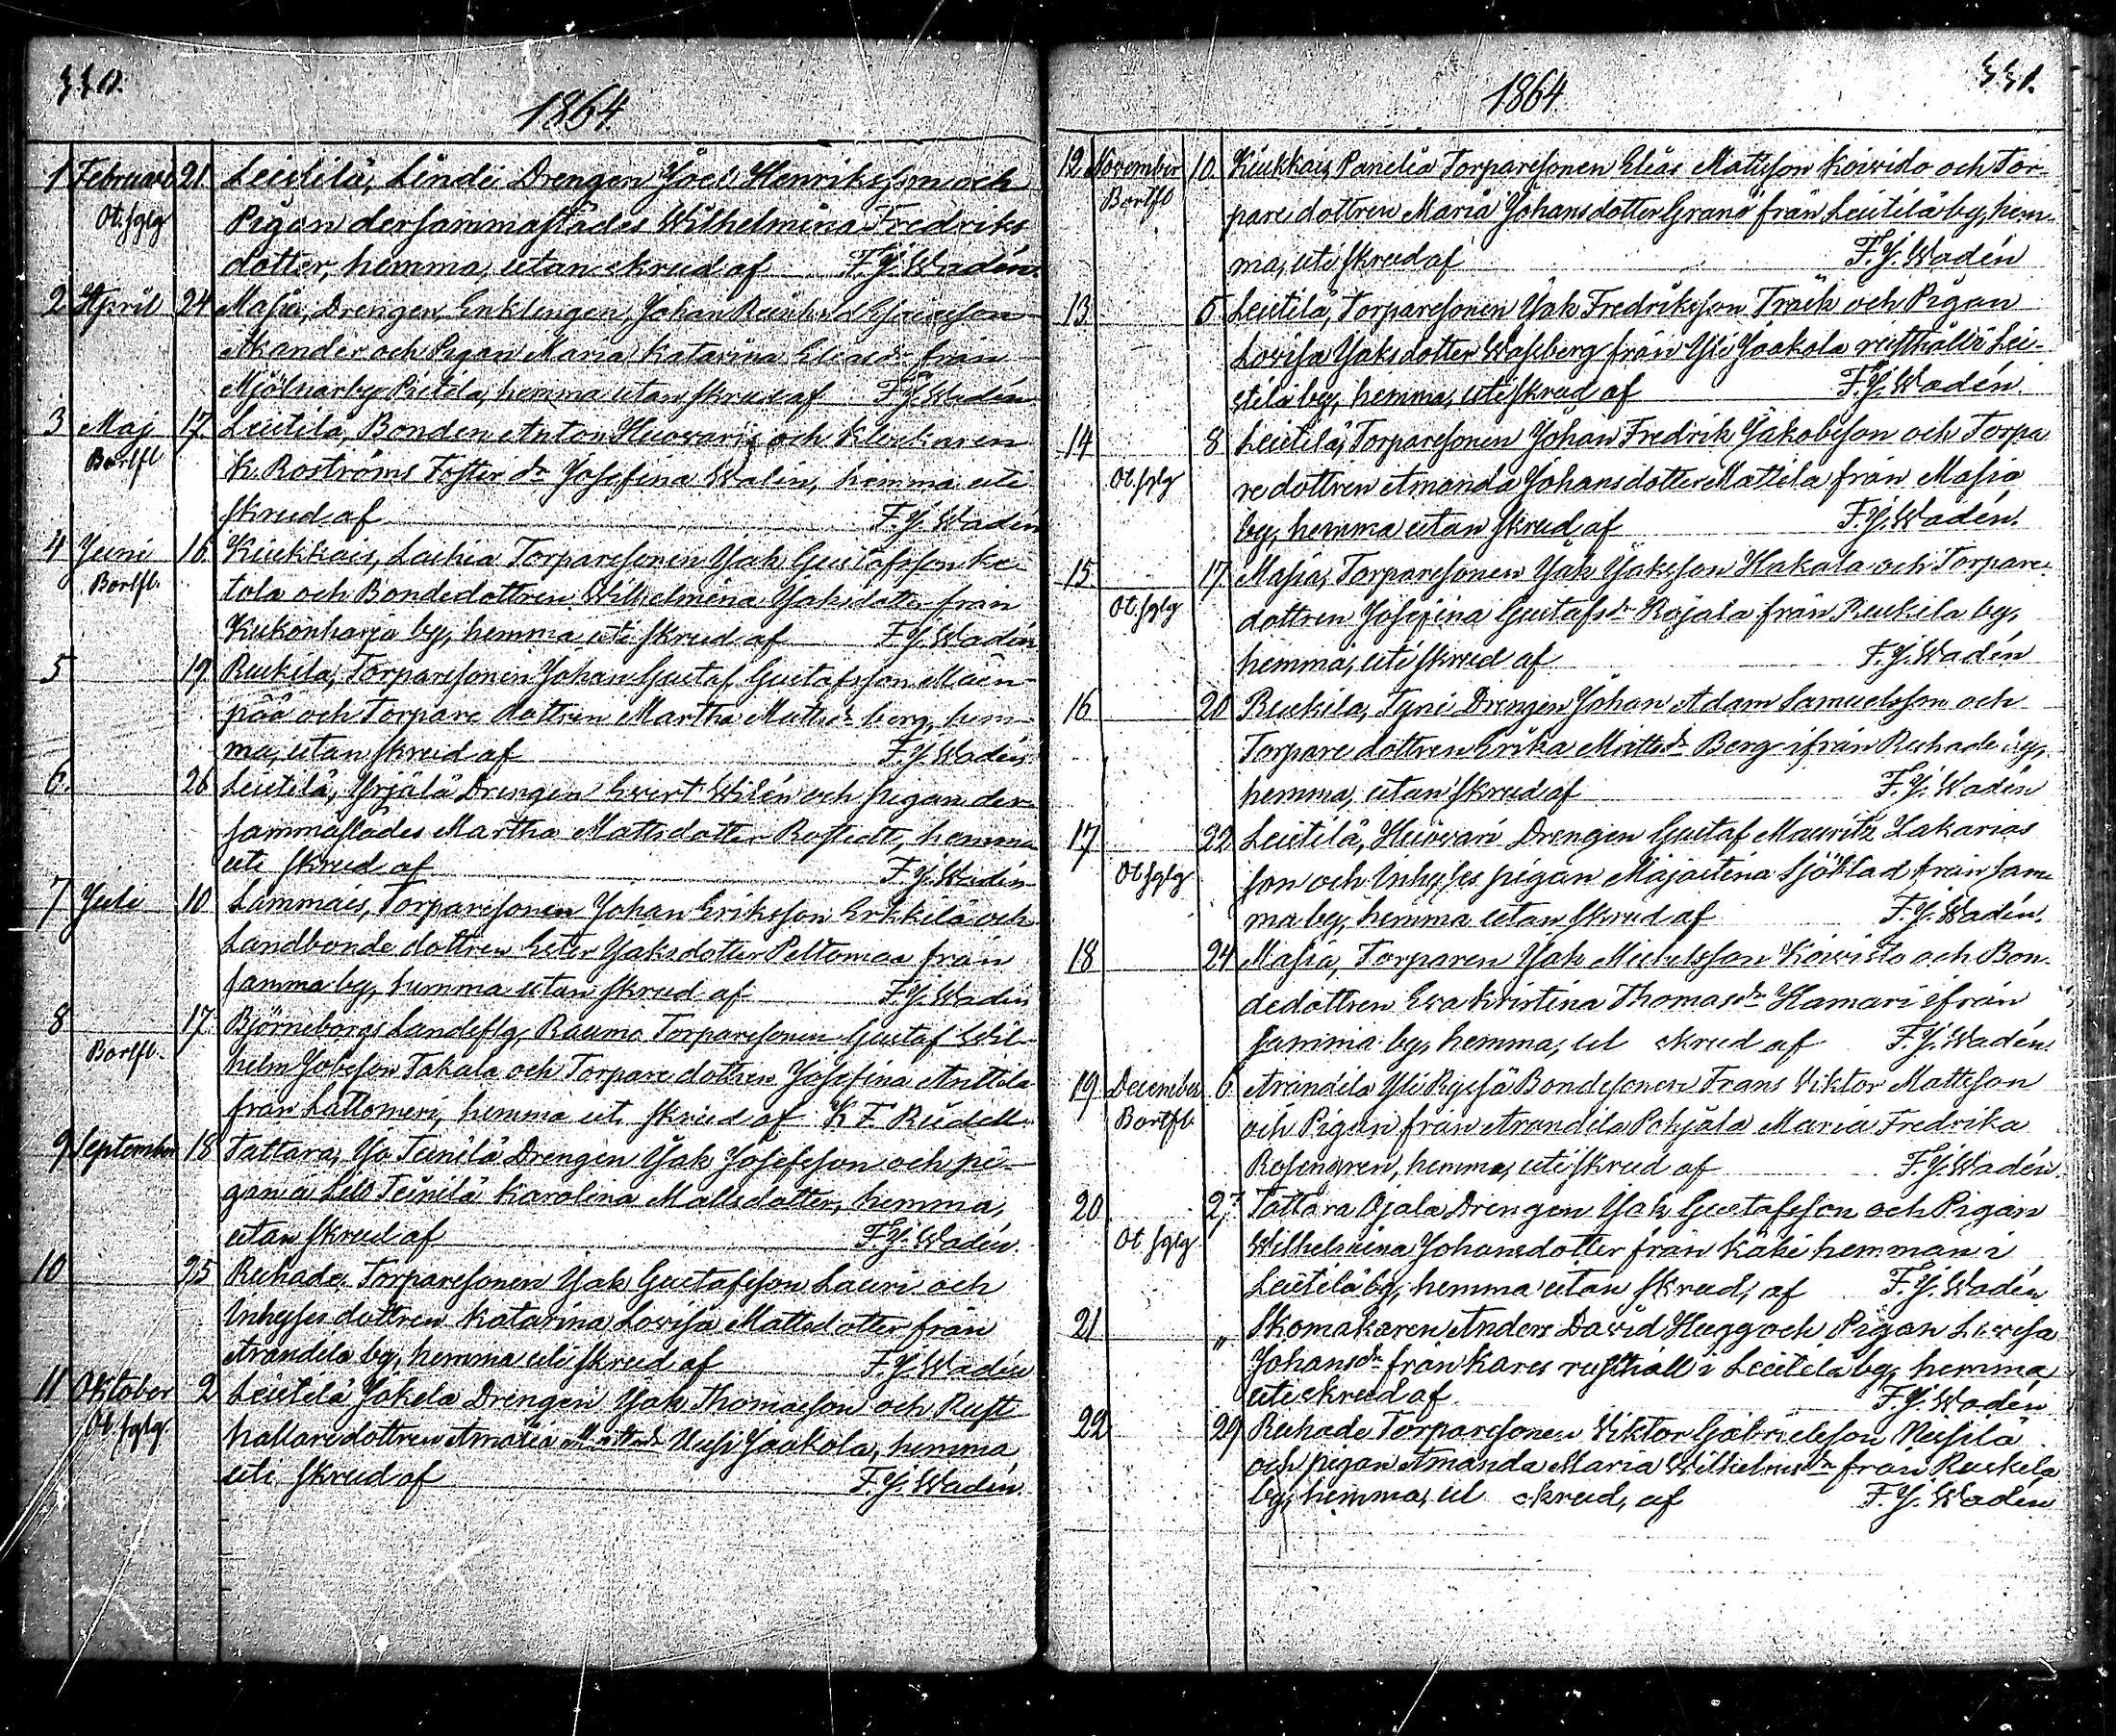 330.
1864.
1 Februari 21. Leistilä, Lindi Drengen Joel Henriksson och
Ot. fglg Pigan dersammastädes Wilhelmina Fredriks
dotter, hemma, utan skrud af F. J. Wadén.
2 April 24 Masia, Drengen, Enklingen, Johan
Akander och Pigan Maria Katarina Eliasdr från
Mjölnarby Pietilä, hemma utan skrud af F. J. Wadén
3 Maj 17. Leistilä, Bonden Anton Huovari och Klockaren
Bortfl. K. Roströms Foster dr Josefina Walin, hemma uti
skrud af F. J. Wadén
4 Juni 16. Kiukkais, Laihia Torparesonen Isak Gustafsson Ke-
Bortfl. tola och Bondedottren Wilhelmina Isaksdotter från
Kukonharja by, hemma uti skrud af F. J. Wadén
5 19 Ruskila, Torparesonen Johan Gustaf Gustafsson Mäen-
pää och Torpare dottren Martha Mattsdr berg, hem-
ma, utan skrud af F. J. Wadén
6. 26 Leistilä, Yrjälä Drengen Evert Wilén och pigan der-
sammastädes Martha Mattsdotter Rostedt, hemma
uti skrud af F. J. Wadén
7 Juli 10 Lammais, Torparesonen Johan Eriksson Erkkilä och
Landbonde dottren Ester Isaksdotter Peltomaa från
samma by, hemma utan skrud af F. J. Wadén
8 17. Björneborgs Landsflg, Rauma Torparesonen Gustaf Wil-
Bortfl. helm Jobsson Takala och Torpare dottren Josefina Anttila
från Lattomeri, hemma uti skrud af K. F. Ridell.
9 September 18 Tattara, Iso Teinilä Drengen Isak Josefsson och pi-
gan å Lill Teinilä Karolina Mattsdotter, hemma,
utan skrud af F. J. Wadén.
10 25 Ruhade, Torparesonen Isak Gustafsson Lauri och
Inhyses dottren Katarina Lovisa Mattsdotter från
Arandila by, hemma uti skrud af F. J. Wadén
11 Oktober 2 Leistilä Jokela Drengen Isak Thomasson och Rust
Ot. fglg. hållaredottren Amalia Mattsdr Uusi Jaakola, hemma
uti skrud af F. J. Wadén.
331.
1864
12. November 10. Kiukkais, Panelia Torparesonen Elias Mattsson Koivisto och Tor-
Bortfl pare dottren Maria Johansdotter Granö från Leistilä by, hem-
ma, uti skrud af F. J. Wadén
13 6. Leistilä, Torparesonen Isak Fredriksson Träck och Pigan
Lovisa Isaksdotter Wahlberg från Yli Jaakola rusthåll i Lei-
stilä by, hemma, uti skrud af F. J. Wadén.
14 8 Leistilä, Torparesonen Johan Fredrik Jakobsson och Torpa
Ot. fglg re dottren Amanda Johansdotter Mattila från Masia
by, hemma utan skrud af F. J. Wadén.
15. 17. Masia, Torparesonen Isak Isaksson Hakala och Torpare-
Ot. fglg dottren Josefina Gustafsdr Rojala från Ruskila by,
hemma, uti skrud af F. J. Wadén
16 20 Ruskila, Tyni Drengen Johan Adam Samuelsson och
Torpare dottren Erika Mattsdr Berg ifrån Ruhade by,
hemma, utan skrud af F. J. Wadén
17 22 Leistilä, Huovari Drengen Gustaf Mauritz Zakarias
Ot fglg son och Inhyses pigan Majastina Sjöblad från sam-
ma by, hemma utan skrud af F. J. Wadén.
18 24 Masia, Torparen Isak Michelsson Koivisto och Bon-
dedottren Eva Kristina Thomasdr Hamari ifrån
samma by, hemma, ut skrud af F. J. Wadén.
19 December 6 Arandila Yli Pyssä Bondesonen Frans Viktor Mattsson
Bortfl. och Pigan från Arandila Pohjala Maria Fredrika
Rosengren, hemma, uti skrud af F. J. Wadén.
20 27 Tattara Ojala Drengen Isak Gustafsson och Pigan
Ot fglg Wilhelmina Johansdotter från Käki hemman i
Leistilä by, hemma utan skrud, af F. J. Wadén.
21 „ Skomakaren Anders David Hugg och Pigan Lovisa
Johansdr från Kares rusthåll i Leistilä by, hemma
uti skrud af F. J. Wadén
22 29 Ruhade Torparesonen Viktor Gabrielsson Uusilä
och pigan Amanda Maria Wilhelmsdr från Ruskila
by, hemma, ut skrud, af F. J. Wadén